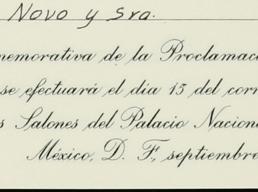 Novo y Sra.
nemorativa de la Proclamac
se efectuará el día 15 del corr
s Salones del Palacio Nacion
México, D. F., septiembre